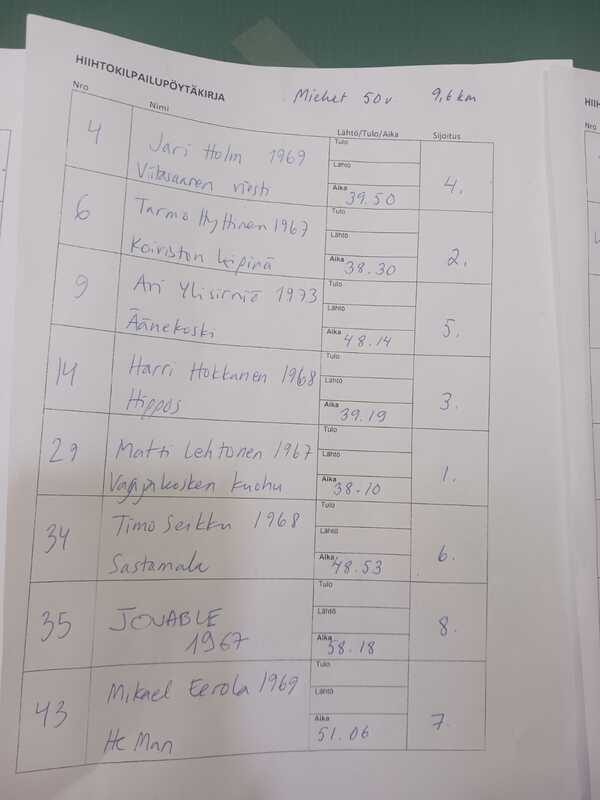 HIIHTOKILPAILUPÖYTÄKIRJA
Miehet 50v 9,6 km
Nro Nimi Lähtö/Tulo/Aika Sijoitus
4 Jari Holm 1969 Tulo
Lähtö
Viitasaaren viesti Aika 39.50 4.
6 Tarmo Hyttinen 1967 Tulo
Lähtö
Koiviston Kipinä Aika 38.30 2.
9 Ari Ylisirniö 1973 Tulo
Lähtö
Äänekoski Aika 48.14 5.
14 Harri Hokkanen 1968 Tulo
Lähtö
Hippos Aika 39.19 3.
29 Matti Lehtonen 1967 Tulo
Lähtö
Vaajakosken Kuohu Aika 38.10 1.
34 Timo Seikku 1968 Tulo
Lähtö
Sastamala Aika 48.53 6.
35 JOUABLE Tulo
Lähtö
1967 Aika 58.18 8.
43 Mikael Eerola 1969 Tulo
Lähtö
Hc Man Aika 51.06 7.
HII
Nro